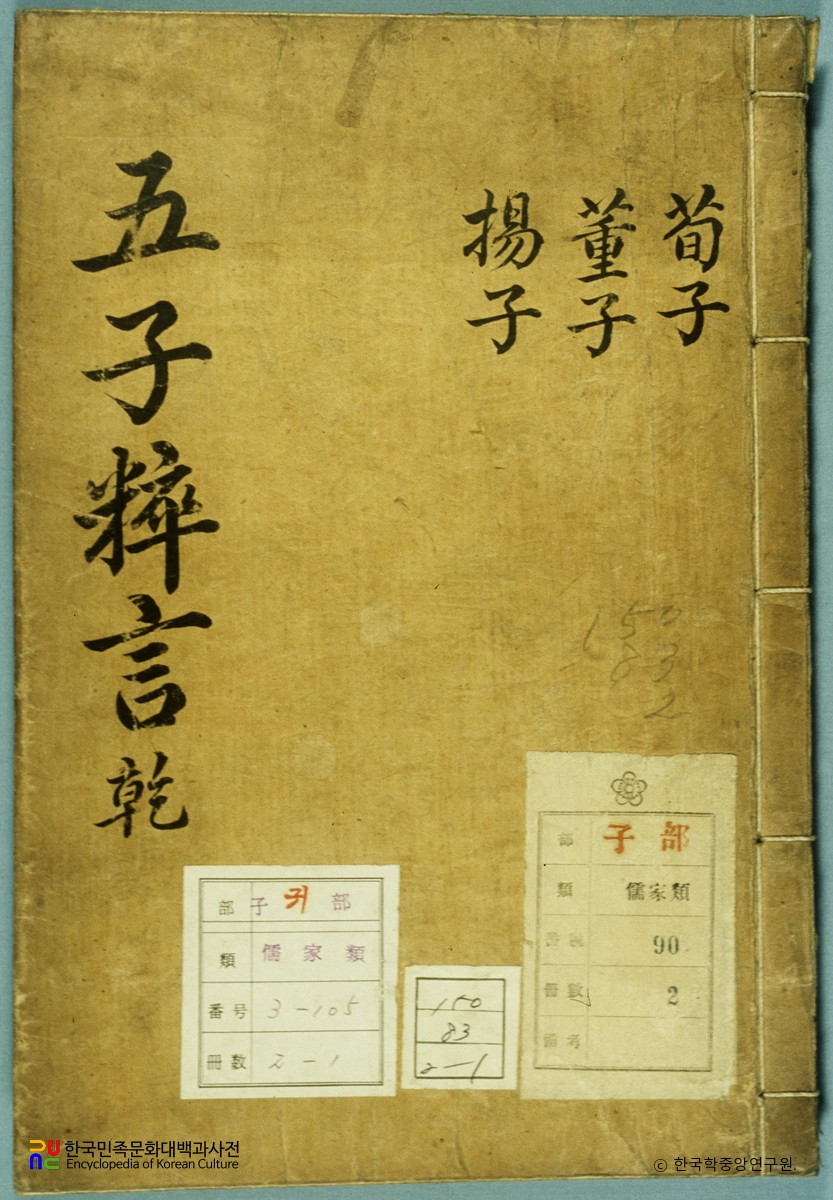 荀子
董子
揚子
五子粹言 乾
150
83
2
部 子部
類 儒家類
番號 90
冊數 2
備考
部 子 귀 部
類 儒家類
番号 3-105
冊數 2-1
150
83
2-1
한국민족문화대백과사전
Encyclopedia of Korean Culture
ⓒ 한국학중앙연구원